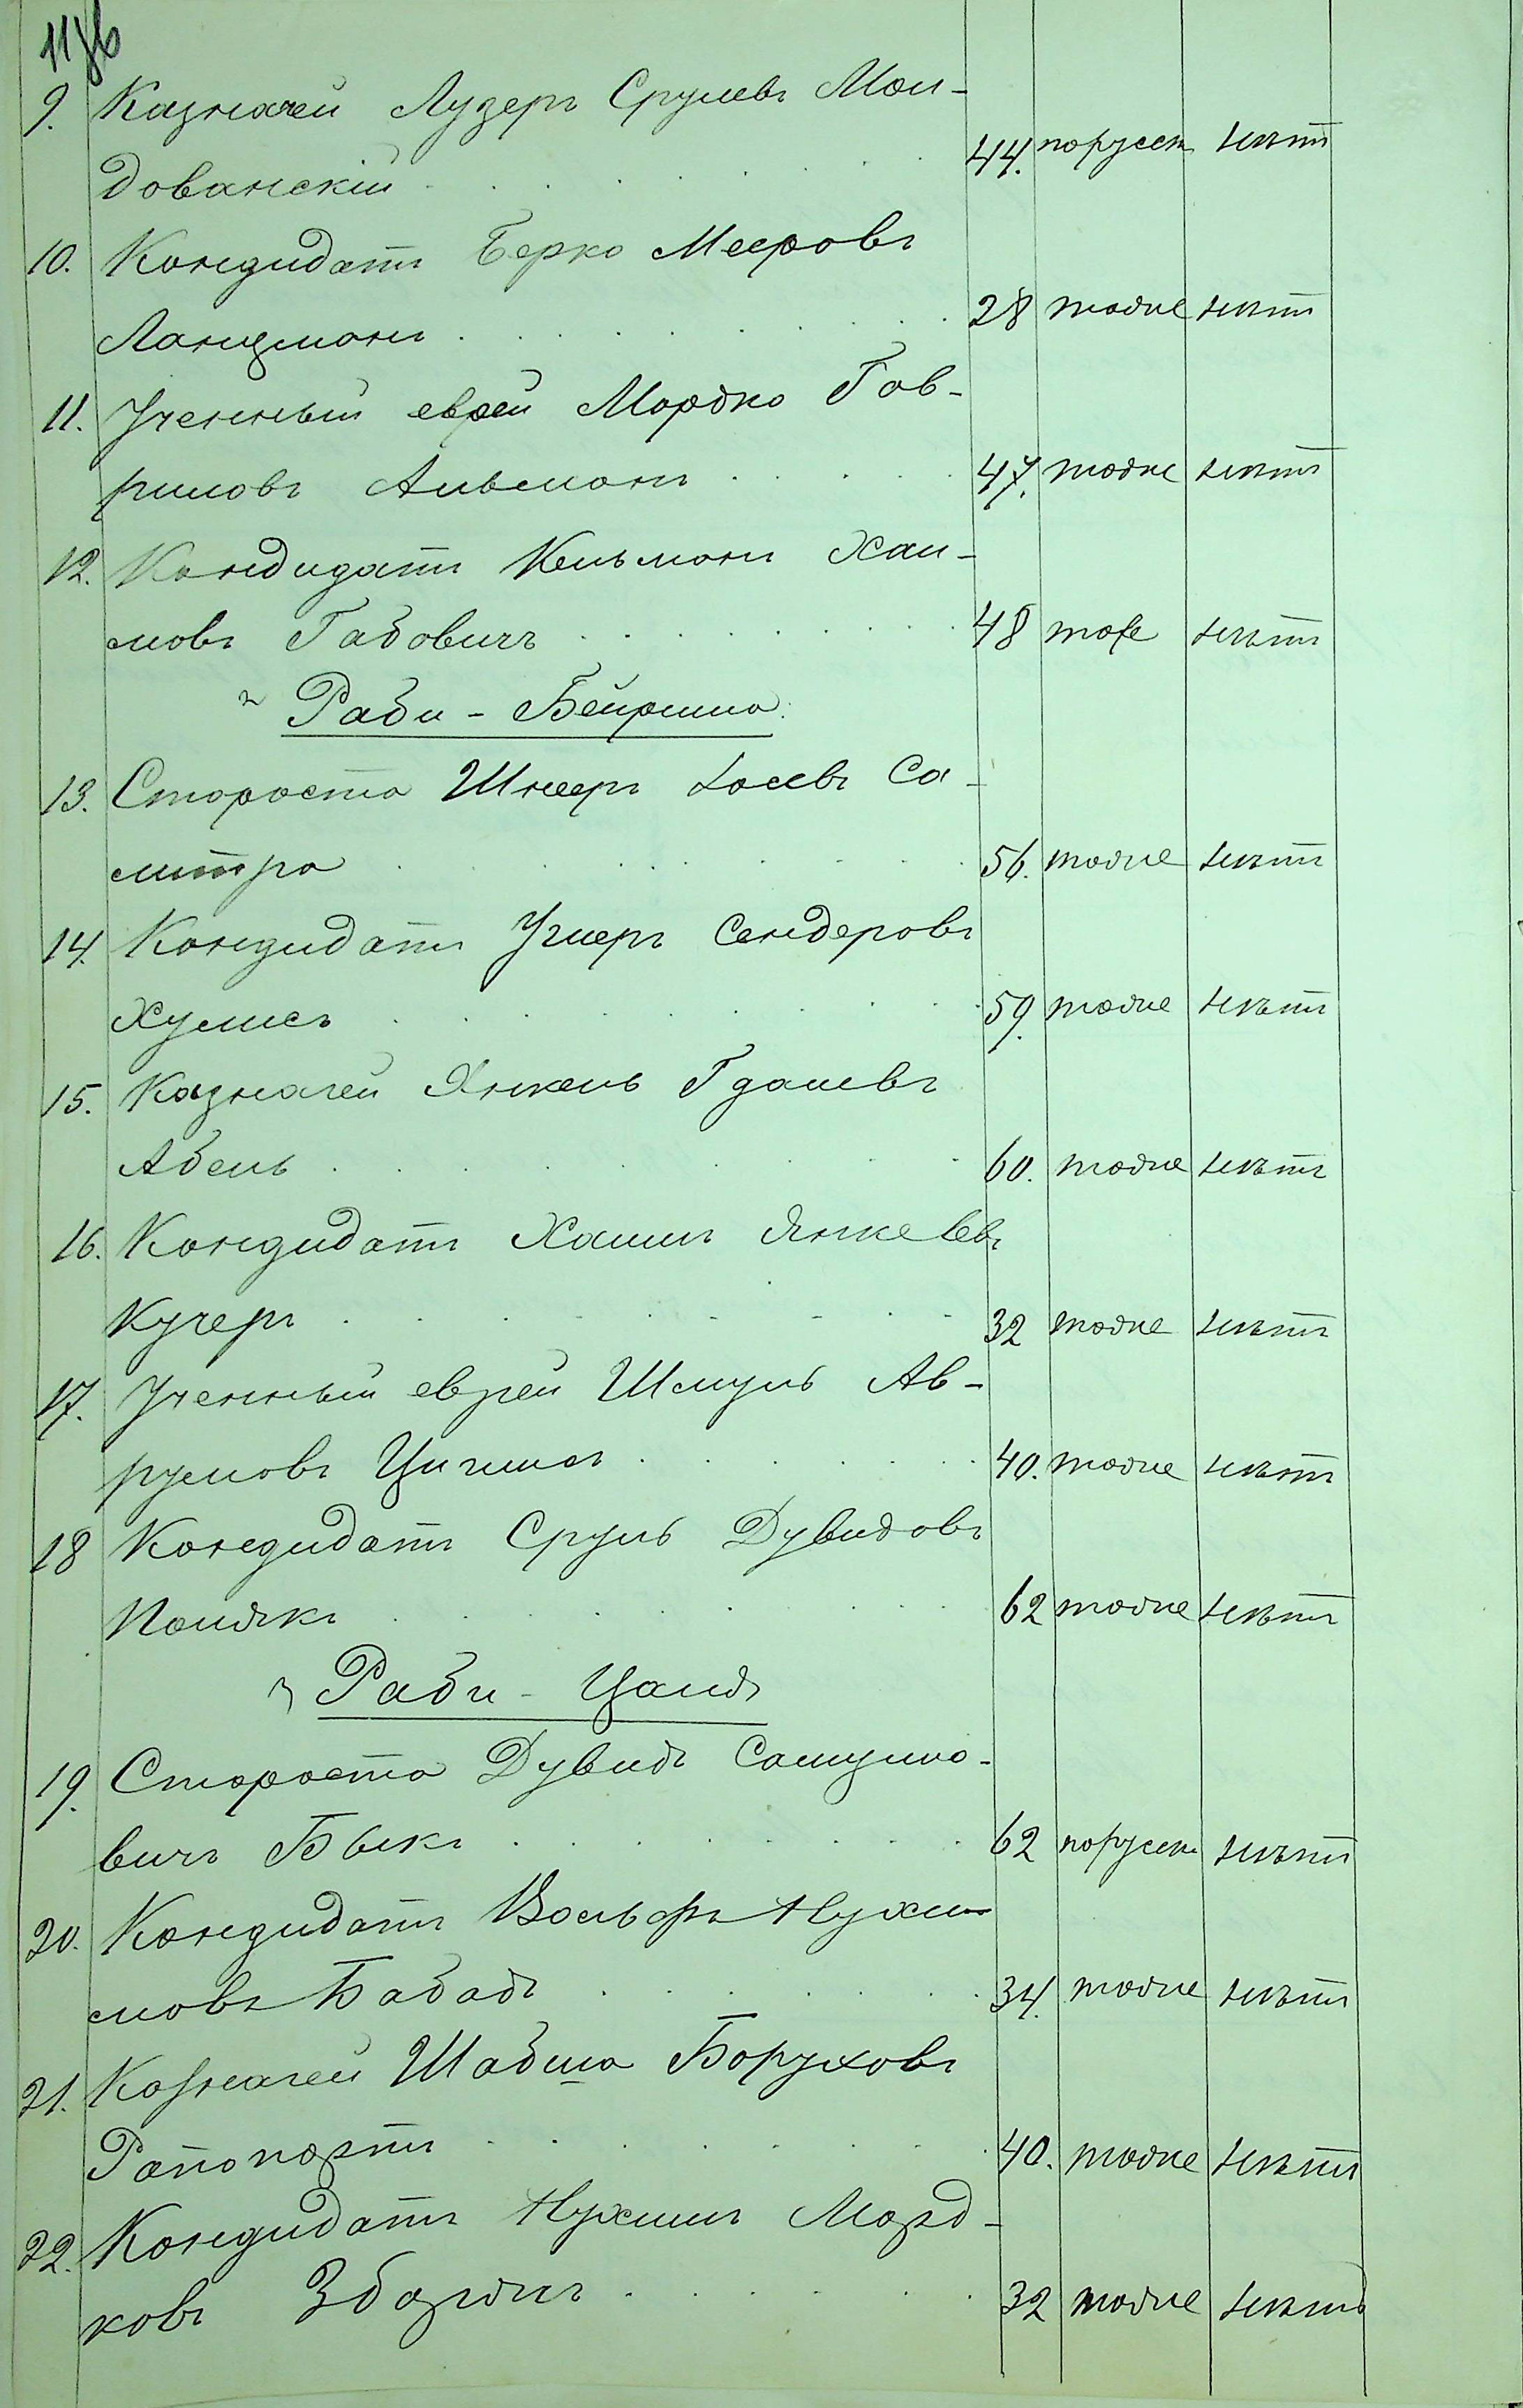 9. Казначей Лузеръ Срулевъ Мол-
дованскій 44. порусск нѣтъ
10. Кандидатъ Берко Мееровъ
Ланцманъ 28 тоже нѣтъ
11. Ученный еврей Мордко Гав-
риловъ Альманъ 47. тоже нѣтъ
12. Кандидатъ Кельманъ Хаи-
мовъ Габовичъ 48 тоже нѣтъ
Раби - Бейриша
13. Староста Шнееръ Іосевъ Са-
литра 56. тоже нѣтъ
14. Кандидатъ Ушеръ Сендеровъ
59. тоже нѣтъ
15. Казначей Янкель Гдалевъ
Абель 60. тоже нѣтъ
16. Кандидатъ Хаимъ Янкелевъ
Кучеръ 32 тоже нѣтъ
17. Ученный еврей Шмуль Ав-
румовъ 40. тоже нѣтъ
18 Кандидатъ Сруль Дувидовъ
Полякъ 62 тоже нѣтъ
Раби -
19. Староста Дувидъ Самуило-
вичъ Быкъ 62 порусск нѣтъ
20. Кандидатъ Вольфъ Нухи-
мовъ Бабадъ 34. тоже нѣтъ
21. Казначей Шабша Боруховъ
Рапопортъ 40. тоже нѣтъ
22. Кандидатъ Нухимъ Морд-
ковъ 32 тоже нѣтъ